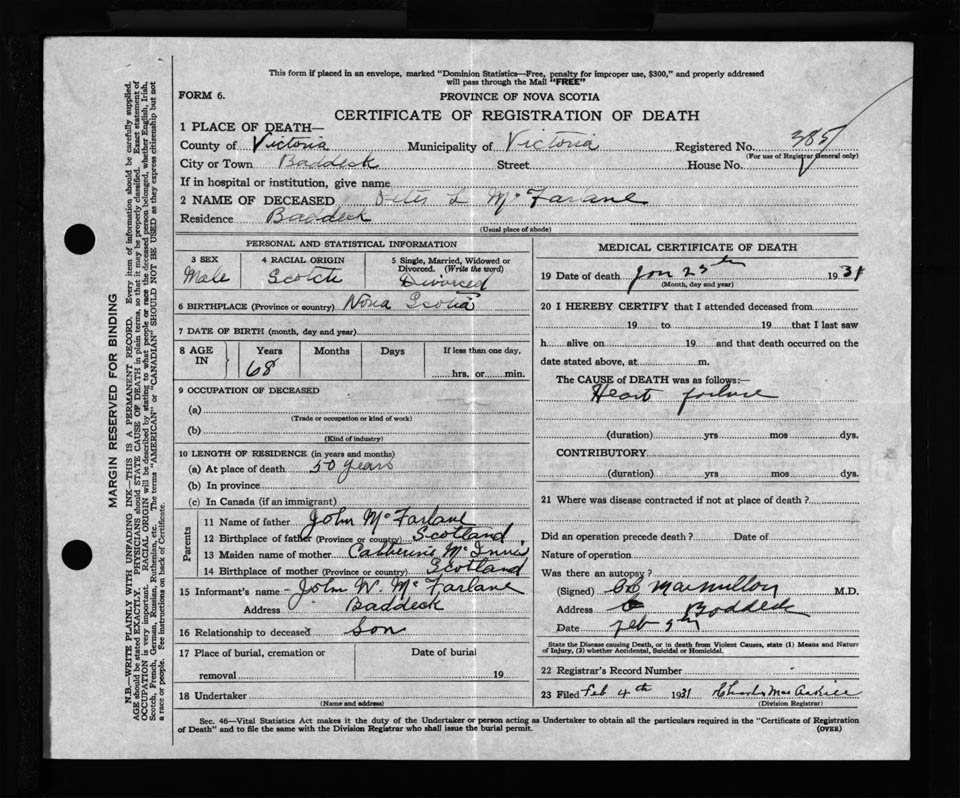 This form if placed in an envelope, marked "Dominion Statistics—Free, penalty for improper use, $300," and properly addressed
will pass through the Mail "FREE"
FORM 6.
PROVINCE OF NOVA SCOTIA
CERTIFICATE OF REGISTRATION OF DEATH
1 PLACE OF DEATH—
County of Victoria Municipality of Victoria Registered No. 385
(For use of Registrar General only)
City or Town Baddeck Street House No.
If in hospital or institution, give name
2 NAME OF DECEASED Peter L McFarlane
Residence Baddeck
(Usual place of abode)
PERSONAL AND STATISTICAL INFORMATION
3 SEX 4 RACIAL ORIGIN 5 Single, Married, Widowed or
Divorced. (Write the word)
Male Scotch Divorced
6 BIRTHPLACE (Province or country) Nova Scotia
7 DATE OF BIRTH (month, day and year)
8 AGE IN Years Months Days If less than one day,
68 hrs. or min.
9 OCCUPATION OF DECEASED
(a)
(Trade or occupation or kind of work)
(b)
(Kind of industry)
10 LENGTH OF RESIDENCE (in years and months)
(a) At place of death 50 years
(b) In province
(c) In Canada (if an immigrant)
Parents
11 Name of father John McFarlane
12 Birthplace of father (Province or country) Scotland
13 Maiden name of mother Catherine McInnis
14 Birthplace of mother (Province or country) Scotland
15 Informant's name John W. McFarlane
Address Baddeck
16 Relationship to deceased Son
17 Place of burial, cremation or Date of burial
removal 19
18 Undertaker
(Name and address)
MEDICAL CERTIFICATE OF DEATH
19 Date of death Jan 25th 1931
(Month, day and year)
20 I HEREBY CERTIFY that I attended deceased from
19 to 19 that I last saw
h alive on 19 and that death occurred on the
date stated above, at m.
The CAUSE of DEATH was as follows:—
Heart failure
(duration) yrs mos dys.
CONTRIBUTORY
(duration) yrs mos dys.
21 Where was disease contracted if not at place of death?
Did an operation precede death? Date of
Nature of operation
Was there an autopsy?
(Signed) MacMillan M.D.
Address Baddeck
Date Feb
State the Disease causing Death, or in death from Violent Causes, state (1) Means and Nature
of Injury, (2) whether Accidental, Suicidal or Homicidal.
22 Registrar's Record Number
23 Filed Feb 4th 1931 Charles MacAskill
(Division Registrar)
Sec. 46—Vital Statistics Act makes it the duty of the Undertaker or person acting as Undertaker to obtain all the particulars required in the "Certificate of Registration
of Death" and to file the same with the Division Registrar who shall issue the burial permit. (OVER)
MARGIN RESERVED FOR BINDING
N.B.—WRITE PLAINLY WITH UNFADING INK—THIS IS A PERMANENT RECORD. Every item of information should be carefully supplied.
AGE should be stated EXACTLY. PHYSICIANS should STATE CAUSE OF DEATH in plain terms, so that it may be properly classified. Exact statement of
OCCUPATION is very important. RACIAL ORIGIN will be described by stating to what people or race the deceased person belonged, whether English, Irish,
Scotch, French, German, Russian, Ruthenian, etc. The terms "AMERICAN" or "CANADIAN" SHOULD NOT BE USED as they express citizenship but not
a race or people. See instructions on back of Certificate.